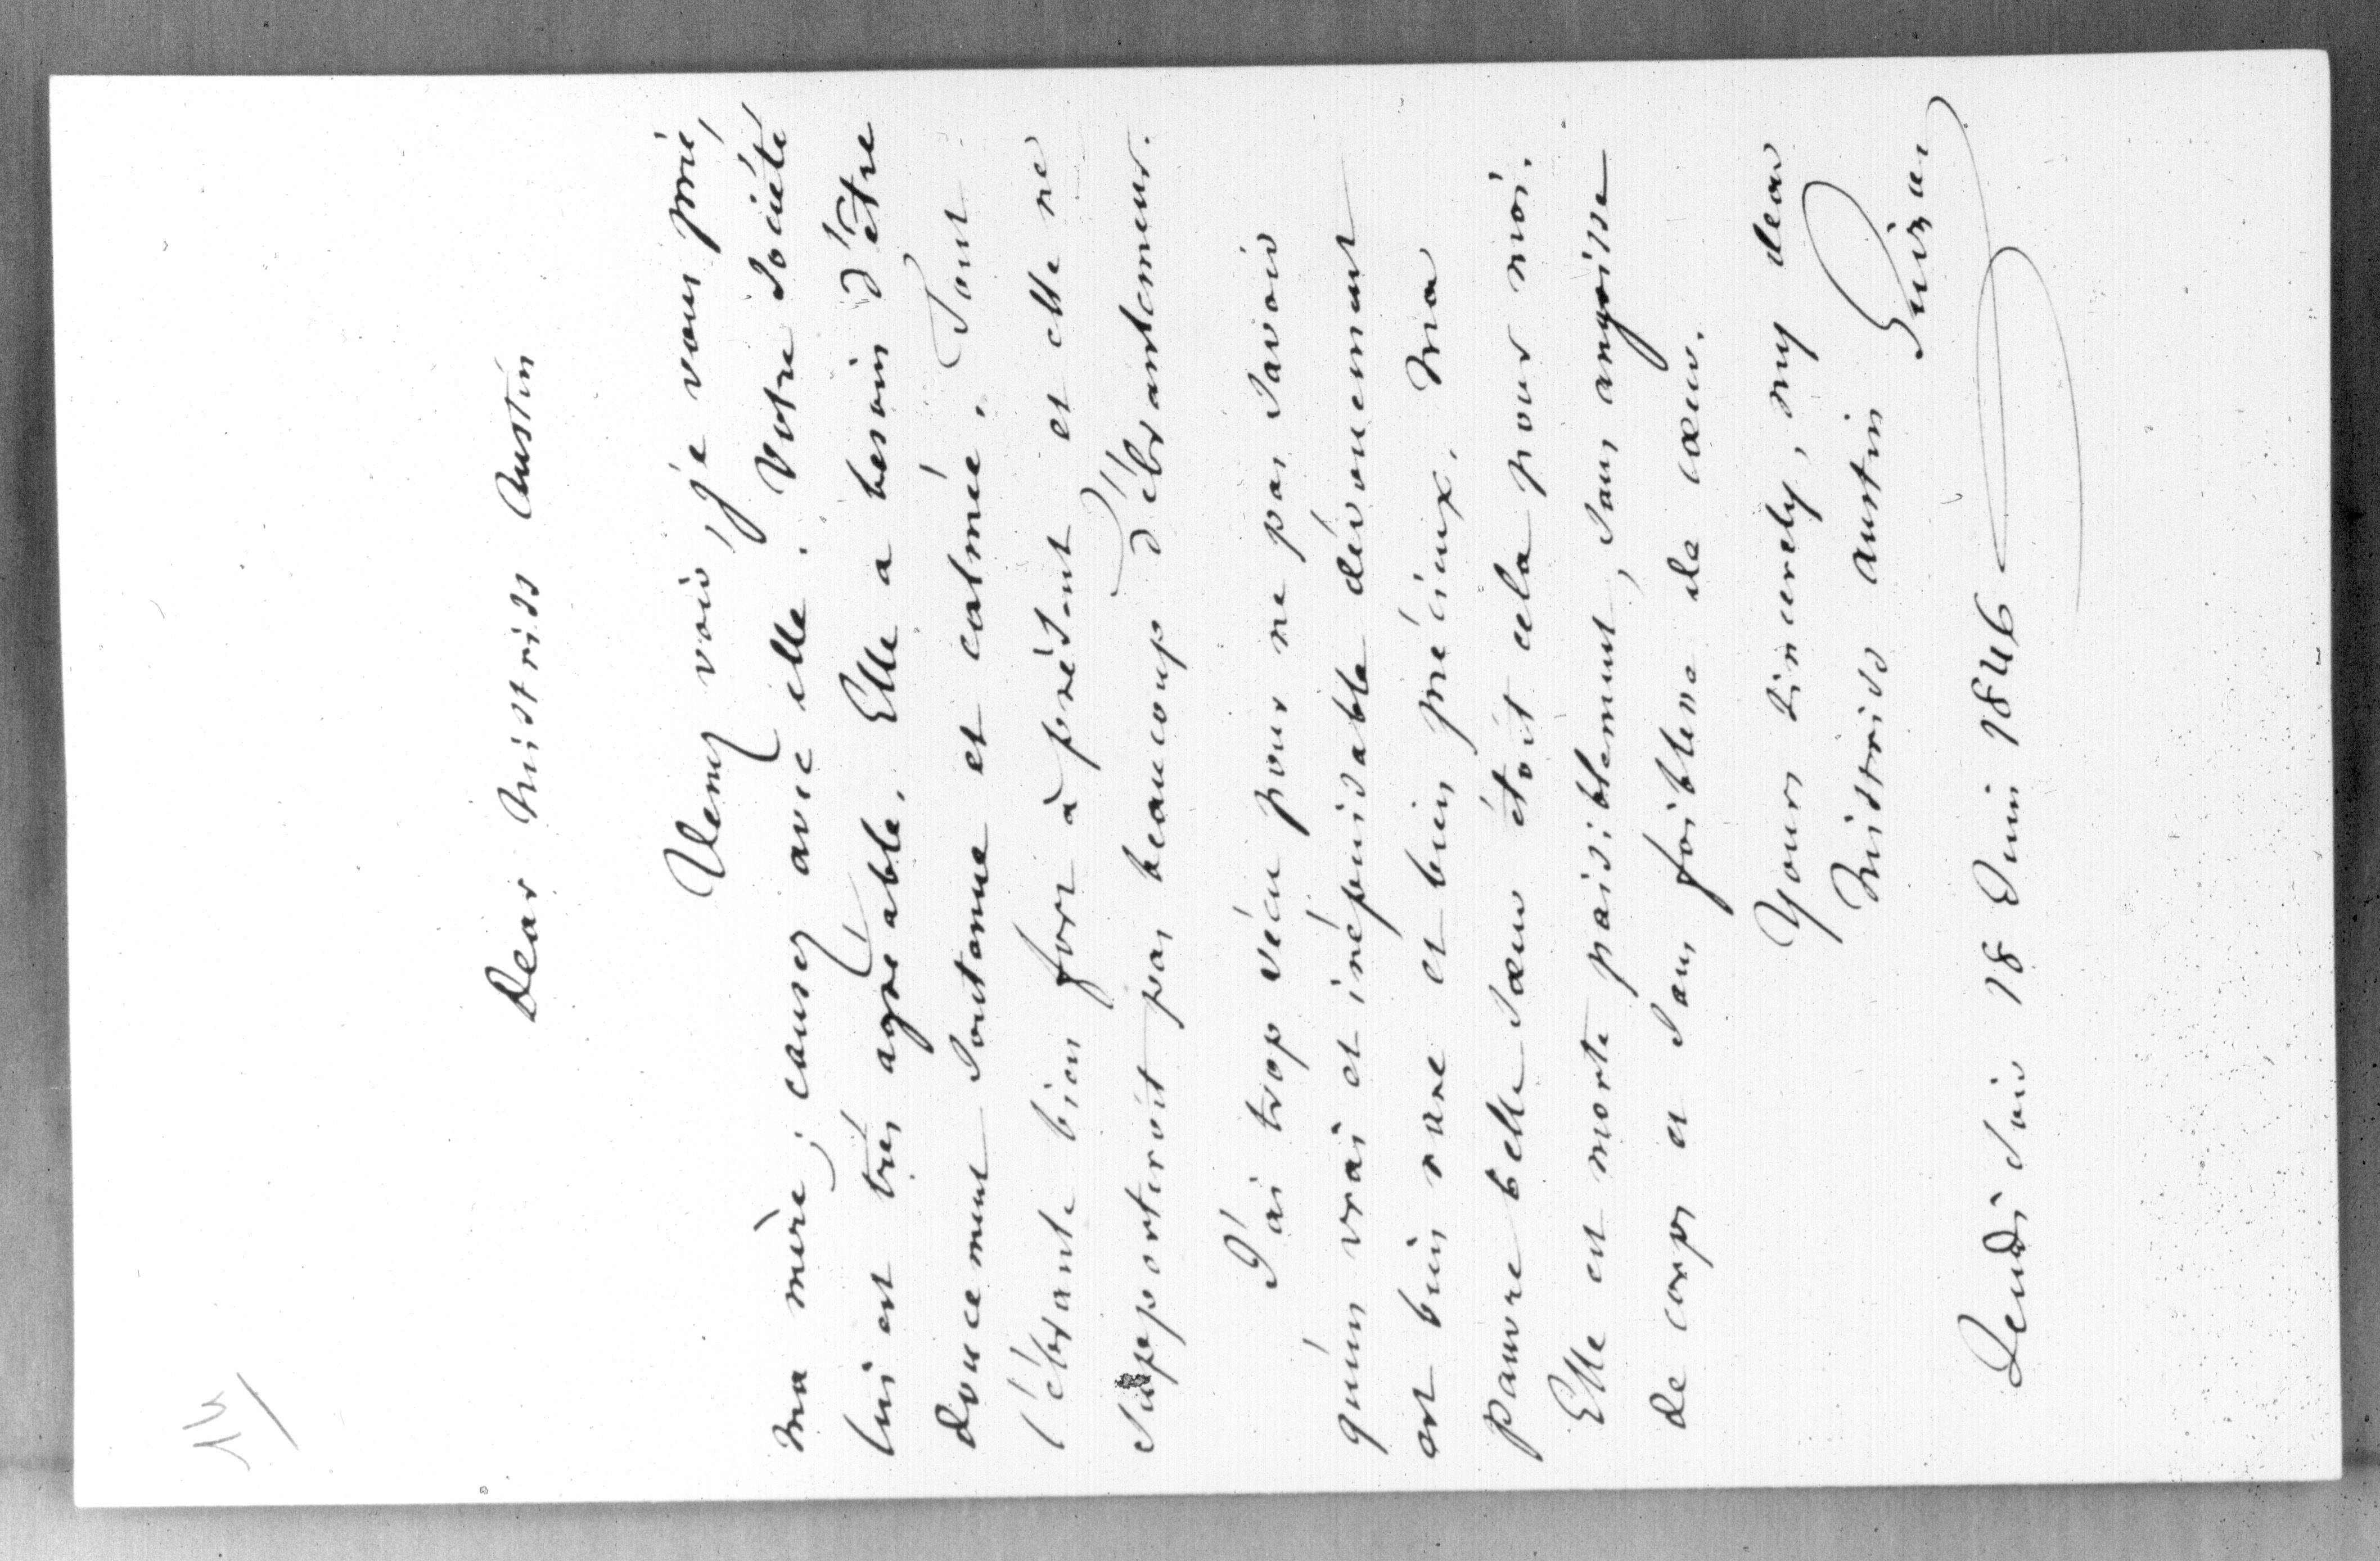 14/
Dear Mistriss Austin
Venez voir, je vous prie,
ma mère ; causez avec elle. Votre Société
lui est très agréable. Elle a besoin d'être
doucement soutenue et calmée. Tout
l'ébranle bien fort à présent et elle ne
supporteroit pas beaucoup d'ébranlemens.
J'ai trop vécu pour ne pas savoir
qu'un vrai et inépuisable dévouement
est bien rare et bien précieux. Ma
pauvre belle sœur étoit cela pour moi.
Elle est morte paisiblement, sans angoisse
de corps et sans foiblesse de cœur.
Yours sincerely, my dear
Mistriss Austin
Guizot
Jeudi soir 18 Juin 1846